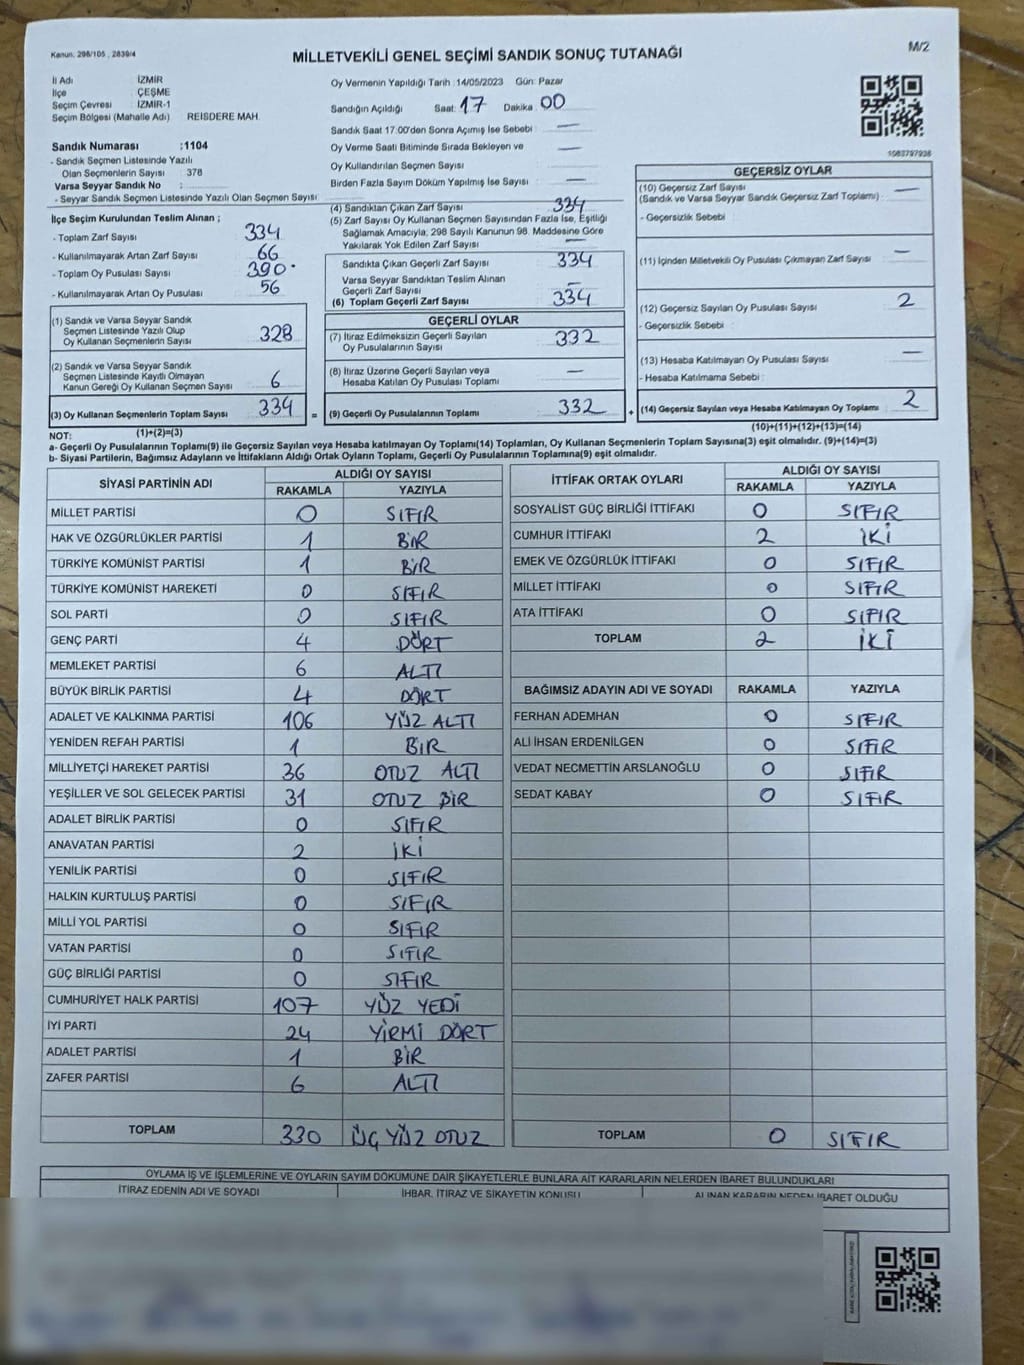 Kanun: 298/105 , 2839/4
MİLLETVEKİLİ GENEL SEÇİMİ SANDIK SONUÇ TUTANAĞI
M/2
İl Adı İZMİR
İlçe ÇEŞME
Seçim Çevresi İZMİR-1
Seçim Bölgesi (Mahalle Adı) REİSDERE MAH.
Sandık Numarası :1104
- Sandık Seçmen Listesinde Yazılı
Olan Seçmenlerin Sayısı : 378
Varsa Seyyar Sandık No :
- Seyyar Sandık Seçmen Listesinde Yazılı Olan Seçmen Sayısı :
Oy Vermenin Yapıldığı Tarih :14/05/2023 Gün: Pazar
Sandığın Açıldığı Saat: 17 Dakika: 00
Sandık Saat 17.00'den Sonra Açımış İse Sebebi : —
Oy Verme Saati Bitiminde Sırada Bekleyen ve
Oy Kullandırılan Seçmen Sayısı —
Birden Fazla Sayım Döküm Yapılmış İse Sayısı —
(4) Sandıktan Çıkan Zarf Sayısı 334
(5) Zarf Sayısı Oy Kullanan Seçmen Sayısından Fazla İse, Eşitliği
Sağlamak Amacıyla; 298 Sayılı Kanunun 98. Maddesine Göre
Yakılarak Yok Edilen Zarf Sayısı —
1083797938
İlçe Seçim Kurulundan Teslim Alınan ;
- Toplam Zarf Sayısı 334
- Kullanılmayarak Artan Zarf Sayısı 66
- Toplam Oy Pusulası Sayısı 390
- Kullanılmayarak Artan Oy Pusulası 56
(1) Sandık ve Varsa Seyyar Sandık
Seçmen Listesinde Yazılı Olup
Oy Kullanan Seçmenlerin Sayısı 328
(2) Sandık ve Varsa Seyyar Sandık
Seçmen Listesinde Kayıtlı Olmayan
Kanun Gereği Oy Kullanan Seçmen Sayısı 6
(3) Oy Kullanan Seçmenlerin Toplam Sayısı 334 =
(1)+(2)=(3)
Sandıkta Çıkan Geçerli Zarf Sayısı 334
Varsa Seyyar Sandıktan Teslim Alınan
Geçerli Zarf Sayısı —
(6) Toplam Geçerli Zarf Sayısı 334
GEÇERLİ OYLAR
(7) İtiraz Edilmeksizin Geçerli Sayılan
Oy Pusulalarının Sayısı 332
(8) İtiraz Üzerine Geçerli Sayılan veya
Hesaba Katılan Oy Pusulası Toplamı —
(9) Geçerli Oy Pusulalarının Toplamı 332 +
GEÇERSİZ OYLAR
(10) Geçersiz Zarf Sayısı —
(Sandık ve Varsa Seyyar Sandık Geçersiz Zarf Toplamı) :
- Geçersizlik Sebebi :
(11) İçinden Milletvekili Oy Pusulası Çıkmayan Zarf Sayısı —
(12) Geçersiz Sayılan Oy Pusulası Sayısı 2
- Geçersizlik Sebebi :
(13) Hesaba Katılmayan Oy Pusulası Sayısı —
- Hesaba Katılmama Sebebi :
(14) Geçersiz Sayılan veya Hesaba Katılmayan Oy Toplamı 2
(10)+(11)+(12)+(13)=(14)
NOT:
a- Geçerli Oy Pusulalarının Toplamı(9) ile Geçersiz Sayılan veya Hesaba katılmayan Oy Toplamı(14) Toplamları, Oy Kullanan Seçmenlerin Toplam Sayısına(3) eşit olmalıdır. (9)+(14)=(3)
b- Siyasi Partilerin, Bağımsız Adayların ve İttifakların Aldığı Ortak Oyların Toplamı, Geçerli Oy Pusulalarının Toplamına(9) eşit olmalıdır.
SİYASİ PARTİNİN ADI ALDIĞI OY SAYISI
RAKAMLA YAZIYLA
MİLLET PARTİSİ 0 SIFIR
HAK VE ÖZGÜRLÜKLER PARTİSİ 1 BİR
TÜRKİYE KOMÜNİST PARTİSİ 1 BİR
TÜRKİYE KOMÜNİST HAREKETİ 0 SIFIR
SOL PARTİ 0 SIFIR
GENÇ PARTİ 4 DÖRT
MEMLEKET PARTİSİ 6 ALTI
BÜYÜK BİRLİK PARTİSİ 4 DÖRT
ADALET VE KALKINMA PARTİSİ 106 YÜZ ALTI
YENİDEN REFAH PARTİSİ 1 BİR
MİLLİYETÇİ HAREKET PARTİSİ 36 OTUZ ALTI
YEŞİLLER VE SOL GELECEK PARTİSİ 31 OTUZ BİR
ADALET BİRLİK PARTİSİ 0 SIFIR
ANAVATAN PARTİSİ 2 İKİ
YENİLİK PARTİSİ 0 SIFIR
HALKIN KURTULUŞ PARTİSİ 0 SIFIR
MİLLİ YOL PARTİSİ 0 SIFIR
VATAN PARTİSİ 0 SIFIR
GÜÇ BİRLİĞİ PARTİSİ 0 SIFIR
CUMHURİYET HALK PARTİSİ 107 YÜZ YEDİ
İYİ PARTİ 24 YİRMİ DÖRT
ADALET PARTİSİ 1 BİR
ZAFER PARTİSİ 6 ALTI
TOPLAM 330 ÜÇ YÜZ OTUZ
İTTİFAK ORTAK OYLARI ALDIĞI OY SAYISI
RAKAMLA YAZIYLA
SOSYALİST GÜÇ BİRLİĞİ İTTİFAKI 0 SIFIR
CUMHUR İTTİFAKI 2 İKİ
EMEK VE ÖZGÜRLÜK İTTİFAKI 0 SIFIR
MİLLET İTTİFAKI 0 SIFIR
ATA İTTİFAKI 0 SIFIR
TOPLAM 2 İKİ
BAĞIMSIZ ADAYIN ADI VE SOYADI RAKAMLA YAZIYLA
FERHAN ADEMHAN 0 SIFIR
ALİ İHSAN ERDENİLGEN 0 SIFIR
VEDAT NECMETTİN ARSLANOĞLU 0 SIFIR
SEDAT KABAY 0 SIFIR
TOPLAM 0 SIFIR
OYLAMA İŞ VE İŞLEMLERİNE VE OYLARIN SAYIM DÖKÜMÜNE DAİR ŞİKAYETLERLE BUNLARA AİT KARARLARIN NELERDEN İBARET BULUNDUKLARI
İTİRAZ EDENİN ADI VE SOYADI İHBAR, İTİRAZ VE ŞİKAYETİN KONUSU ALINAN KARARIN NEDEN İBARET OLDUĞU